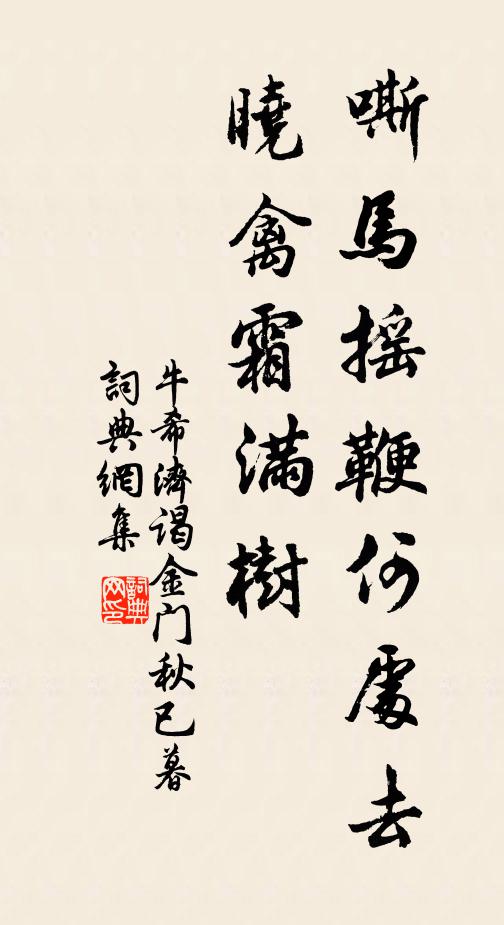 嘶馬摇鞭何處去
曉禽霜满樹
牛希濟谒金门秋已暮
詞典網集
詞典网印